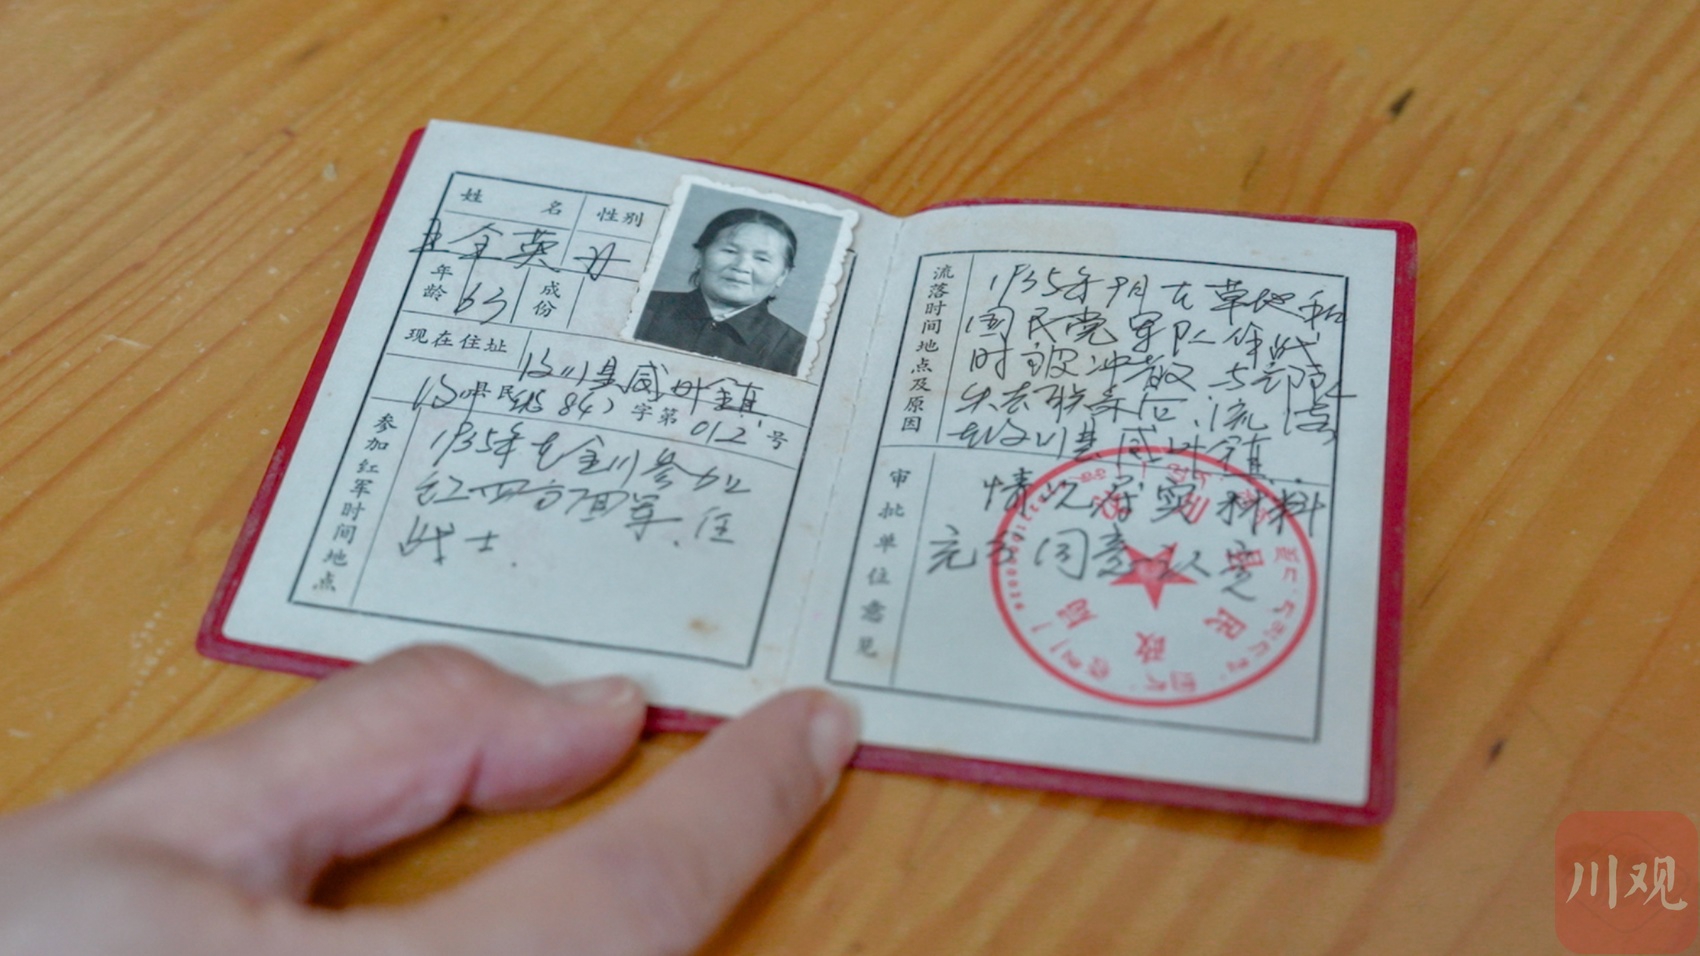 姓 名 性别
王全英 女
年龄 63 成份
现在住址 汶川县威州镇
汶县民优(84)字第012号
参加红军时间地点
1935年在金川参加
红四方面军、任
战士.
流落时间地点及原因
1935年9月在草地和
国民党军队作战
时被冲散与部队
失去联系后、流落
在汶川县威州镇.
审批单位意见
情况属实 材料
充分同意认定
民政局
川观